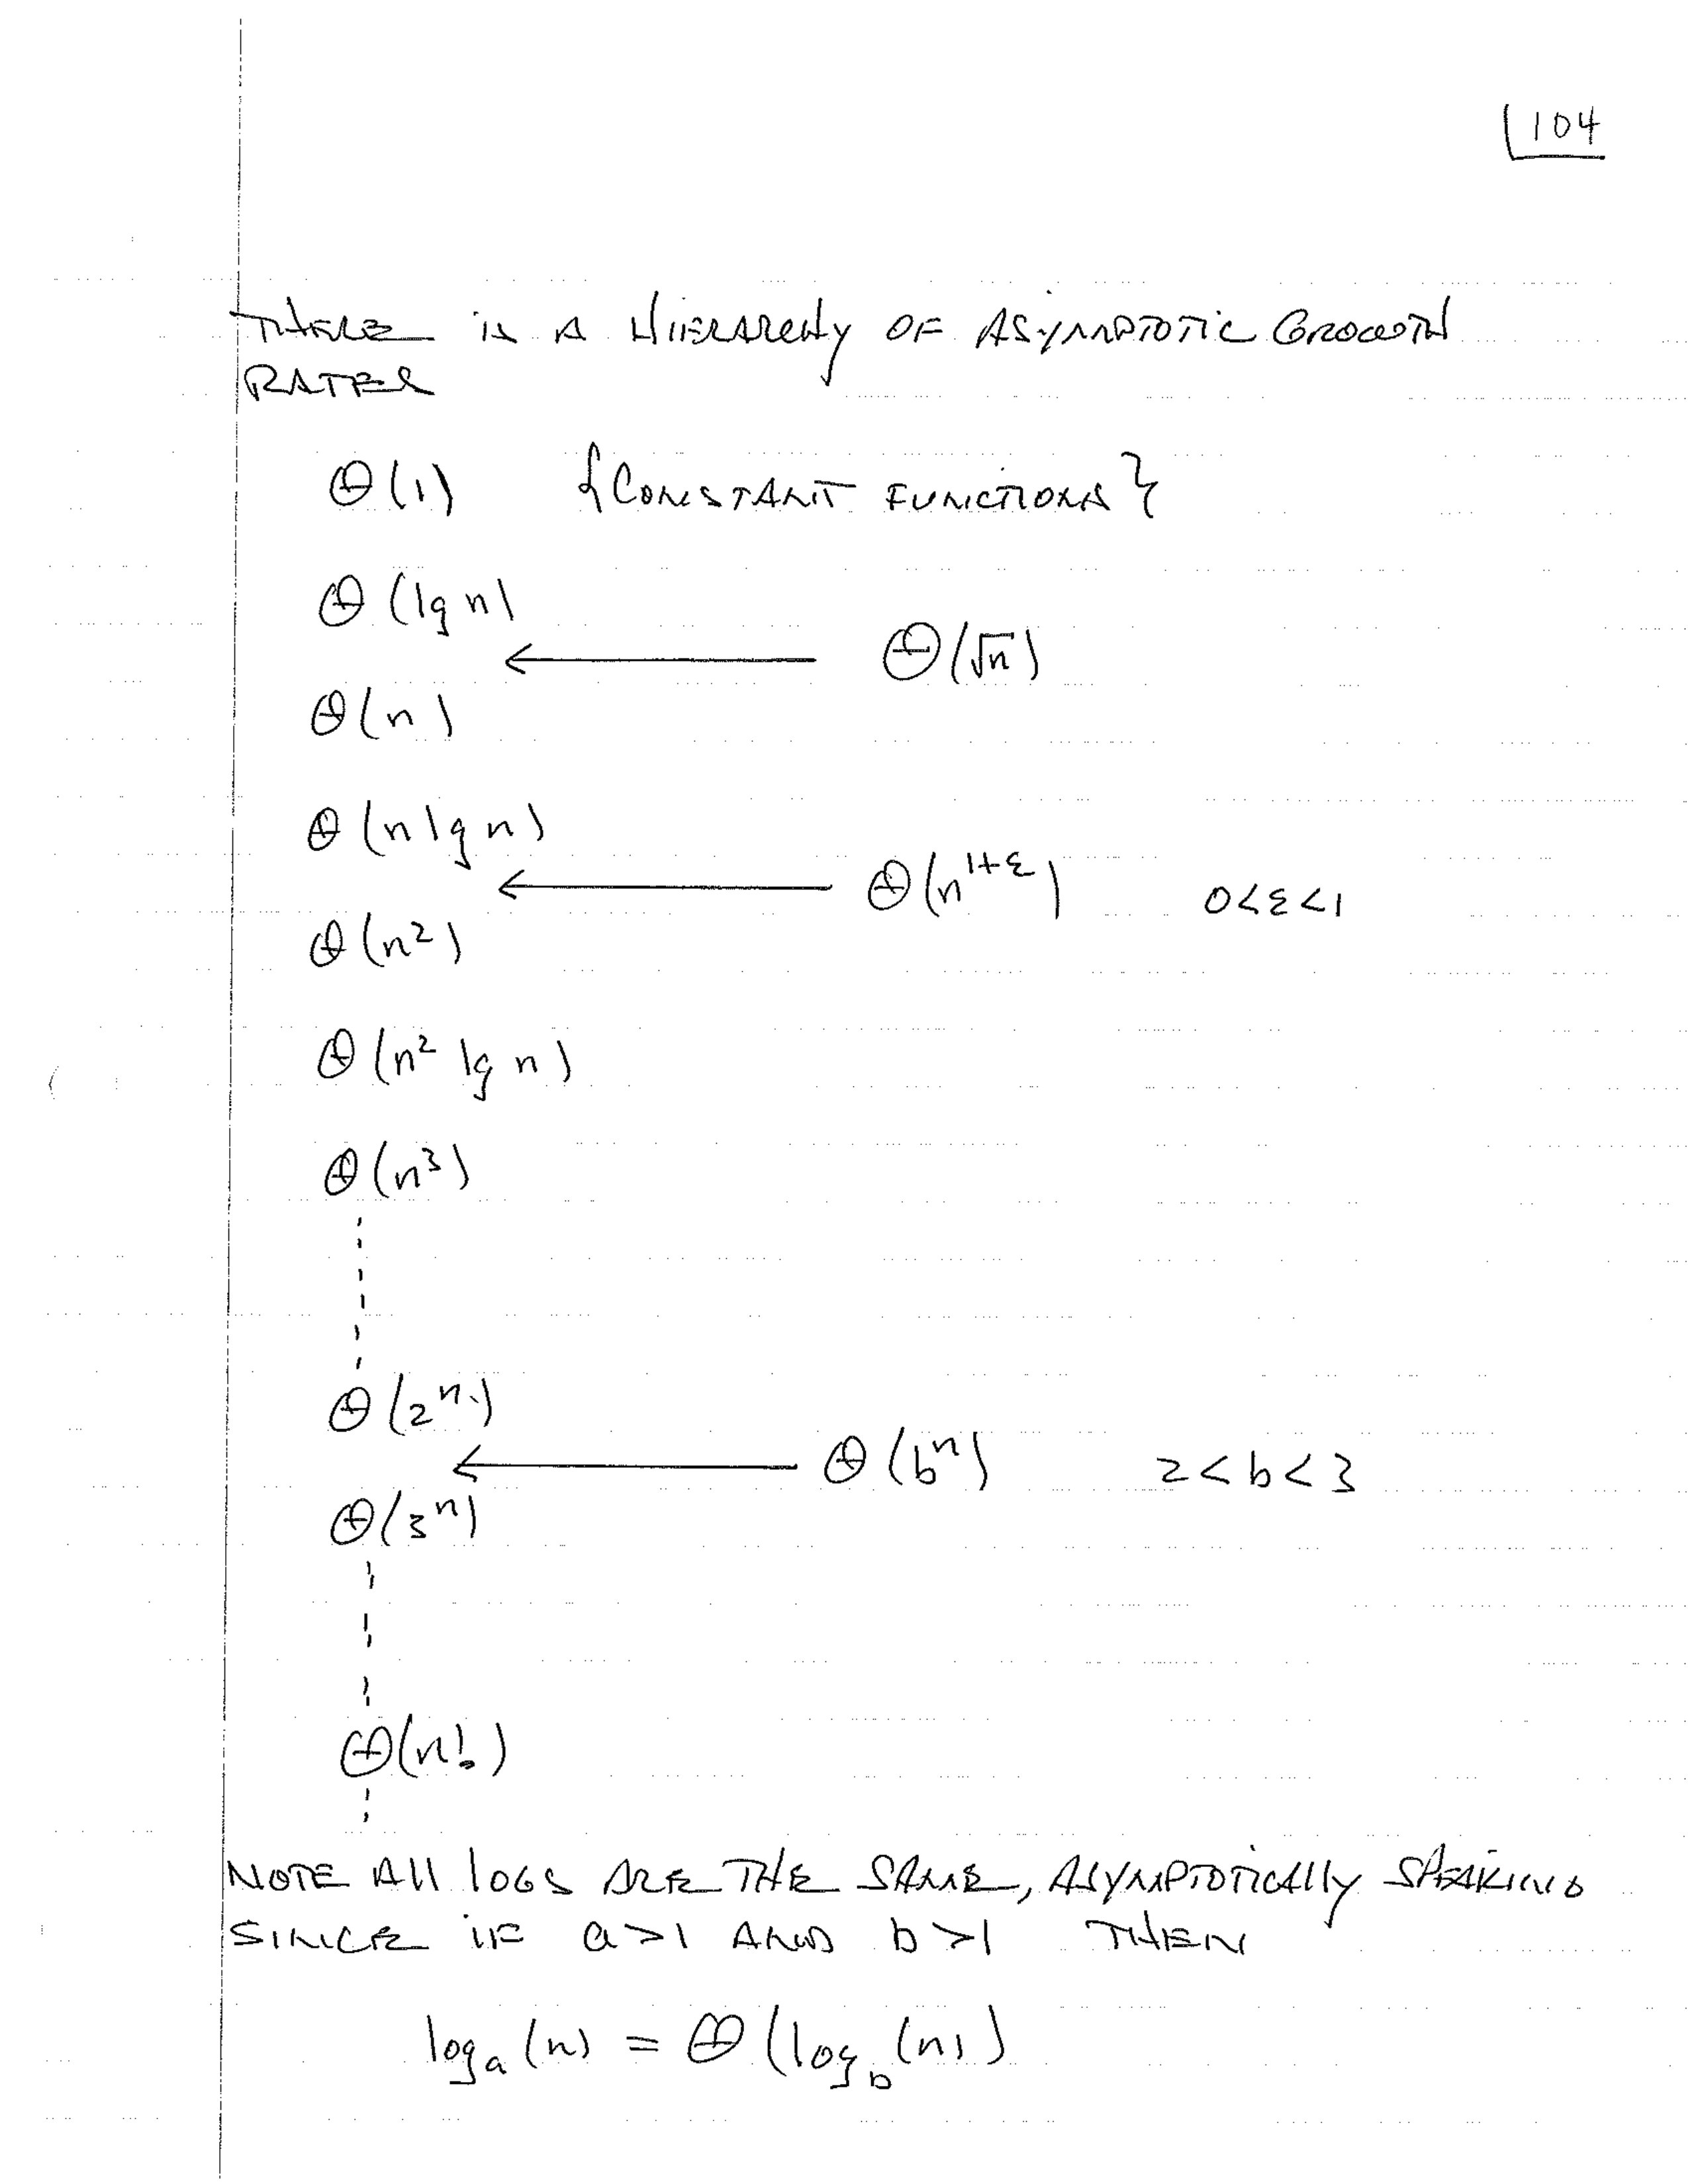 104
THERE IS A HIERARCHY OF ASYMPTOTIC GROWTH
RATES
Θ(1) {CONSTANT FUNCTIONS}
Θ(lg n)
← Θ(√n)
Θ(n)
Θ(n lg n)
← Θ(n^{1+ε}) 0<ε<1
Θ(n²)
Θ(n² lg n)
Θ(n³)
Θ(2ⁿ)
← Θ(bⁿ) 2<b<3
Θ(3ⁿ)
Θ(n!)
NOTE All logs ARE THE SAME, ASYMPTOTICAlly SPEAKING
SINCE IF a>1 AND b>1 THEN
log_a(n) = Θ(log_b(n))